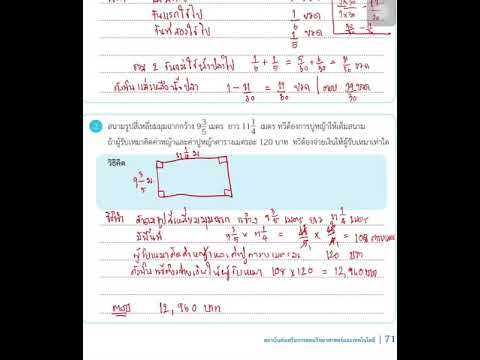 วันแรกใช้ไป 1/6 ขวด
วันที่สองใช้ไป 1/5 ขวด
รวม 2 วันแม่ใช้น้ำปลาไป 1/6 + 1/5 = 5/30 + 6/30 = 11/30 ขวด
ดังนั้น แม่เหลือน้ำปลา 1 - 11/30 = 19/30 ขวด
2 สนามรูปสี่เหลี่ยมมุมฉากกว้าง 9 3/5 เมตร ยาว 11 1/4 เมตร ทวีต้องการปูหญ้าให้เต็มสนาม
ถ้าผู้รับเหมาคิดค่าหญ้าและค่าปูตารางเมตรละ 120 บาท ทวีต้องจ่ายเงินให้ผู้รับเหมาเท่าใด
วิธีคิด
11 1/4 ม.
9 3/5 ม.
วิธีทำ สนามรูปสี่เหลี่ยมมุมฉาก กว้าง 9 3/5 เมตร ยาว 11 1/4 เมตร
มีพื้นที่ 9 3/5 × 11 1/4 = 48/5 × 45/4 = 108 ตารางเมตร
ผู้รับเหมาคิดค่าหญ้าและค่าปูตารางเมตรละ 120 บาท
ดังนั้น ทวีต้องจ่ายเงินให้ผู้รับเหมา 108 × 120 = 12,960 บาท
ตอบ 12,960 บาท
สถาบันส่งเสริมการสอนวิทยาศาสตร์และเทคโนโลยี | 71